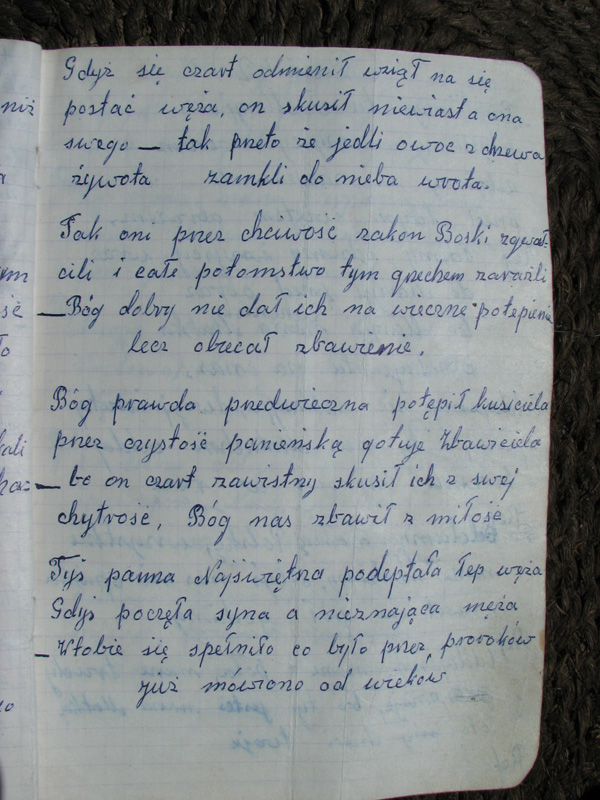 niż
Gdyż się czart odmienił wziął na się
postać węża, on skusił niewiasta ona
swego — tak przeto że jedli owoc z drzewa
żywota zamkli do nieba wrota.
Tak oni przez chciwość zakon Boski zgwał-
cili i całe potomstwo tym grzechem zaraźili
— Bóg dobry nie dał ich na wieczne potępienie
lecz obiecał zbawienie.
Bóg prawda przedwieczna potępił kusiciela
przez czystość panieńską gotuje Zbawiciela
— bo on czart zawistny skusił ich z swej
chytrość, Bóg nas zbawił z miłość
Tyś panna Najświętna podeptała łep węża
Gdyś poczęła syna a nieznająca męża
— W tobie się spełniło co było przez proroków
już mówiono od wieków